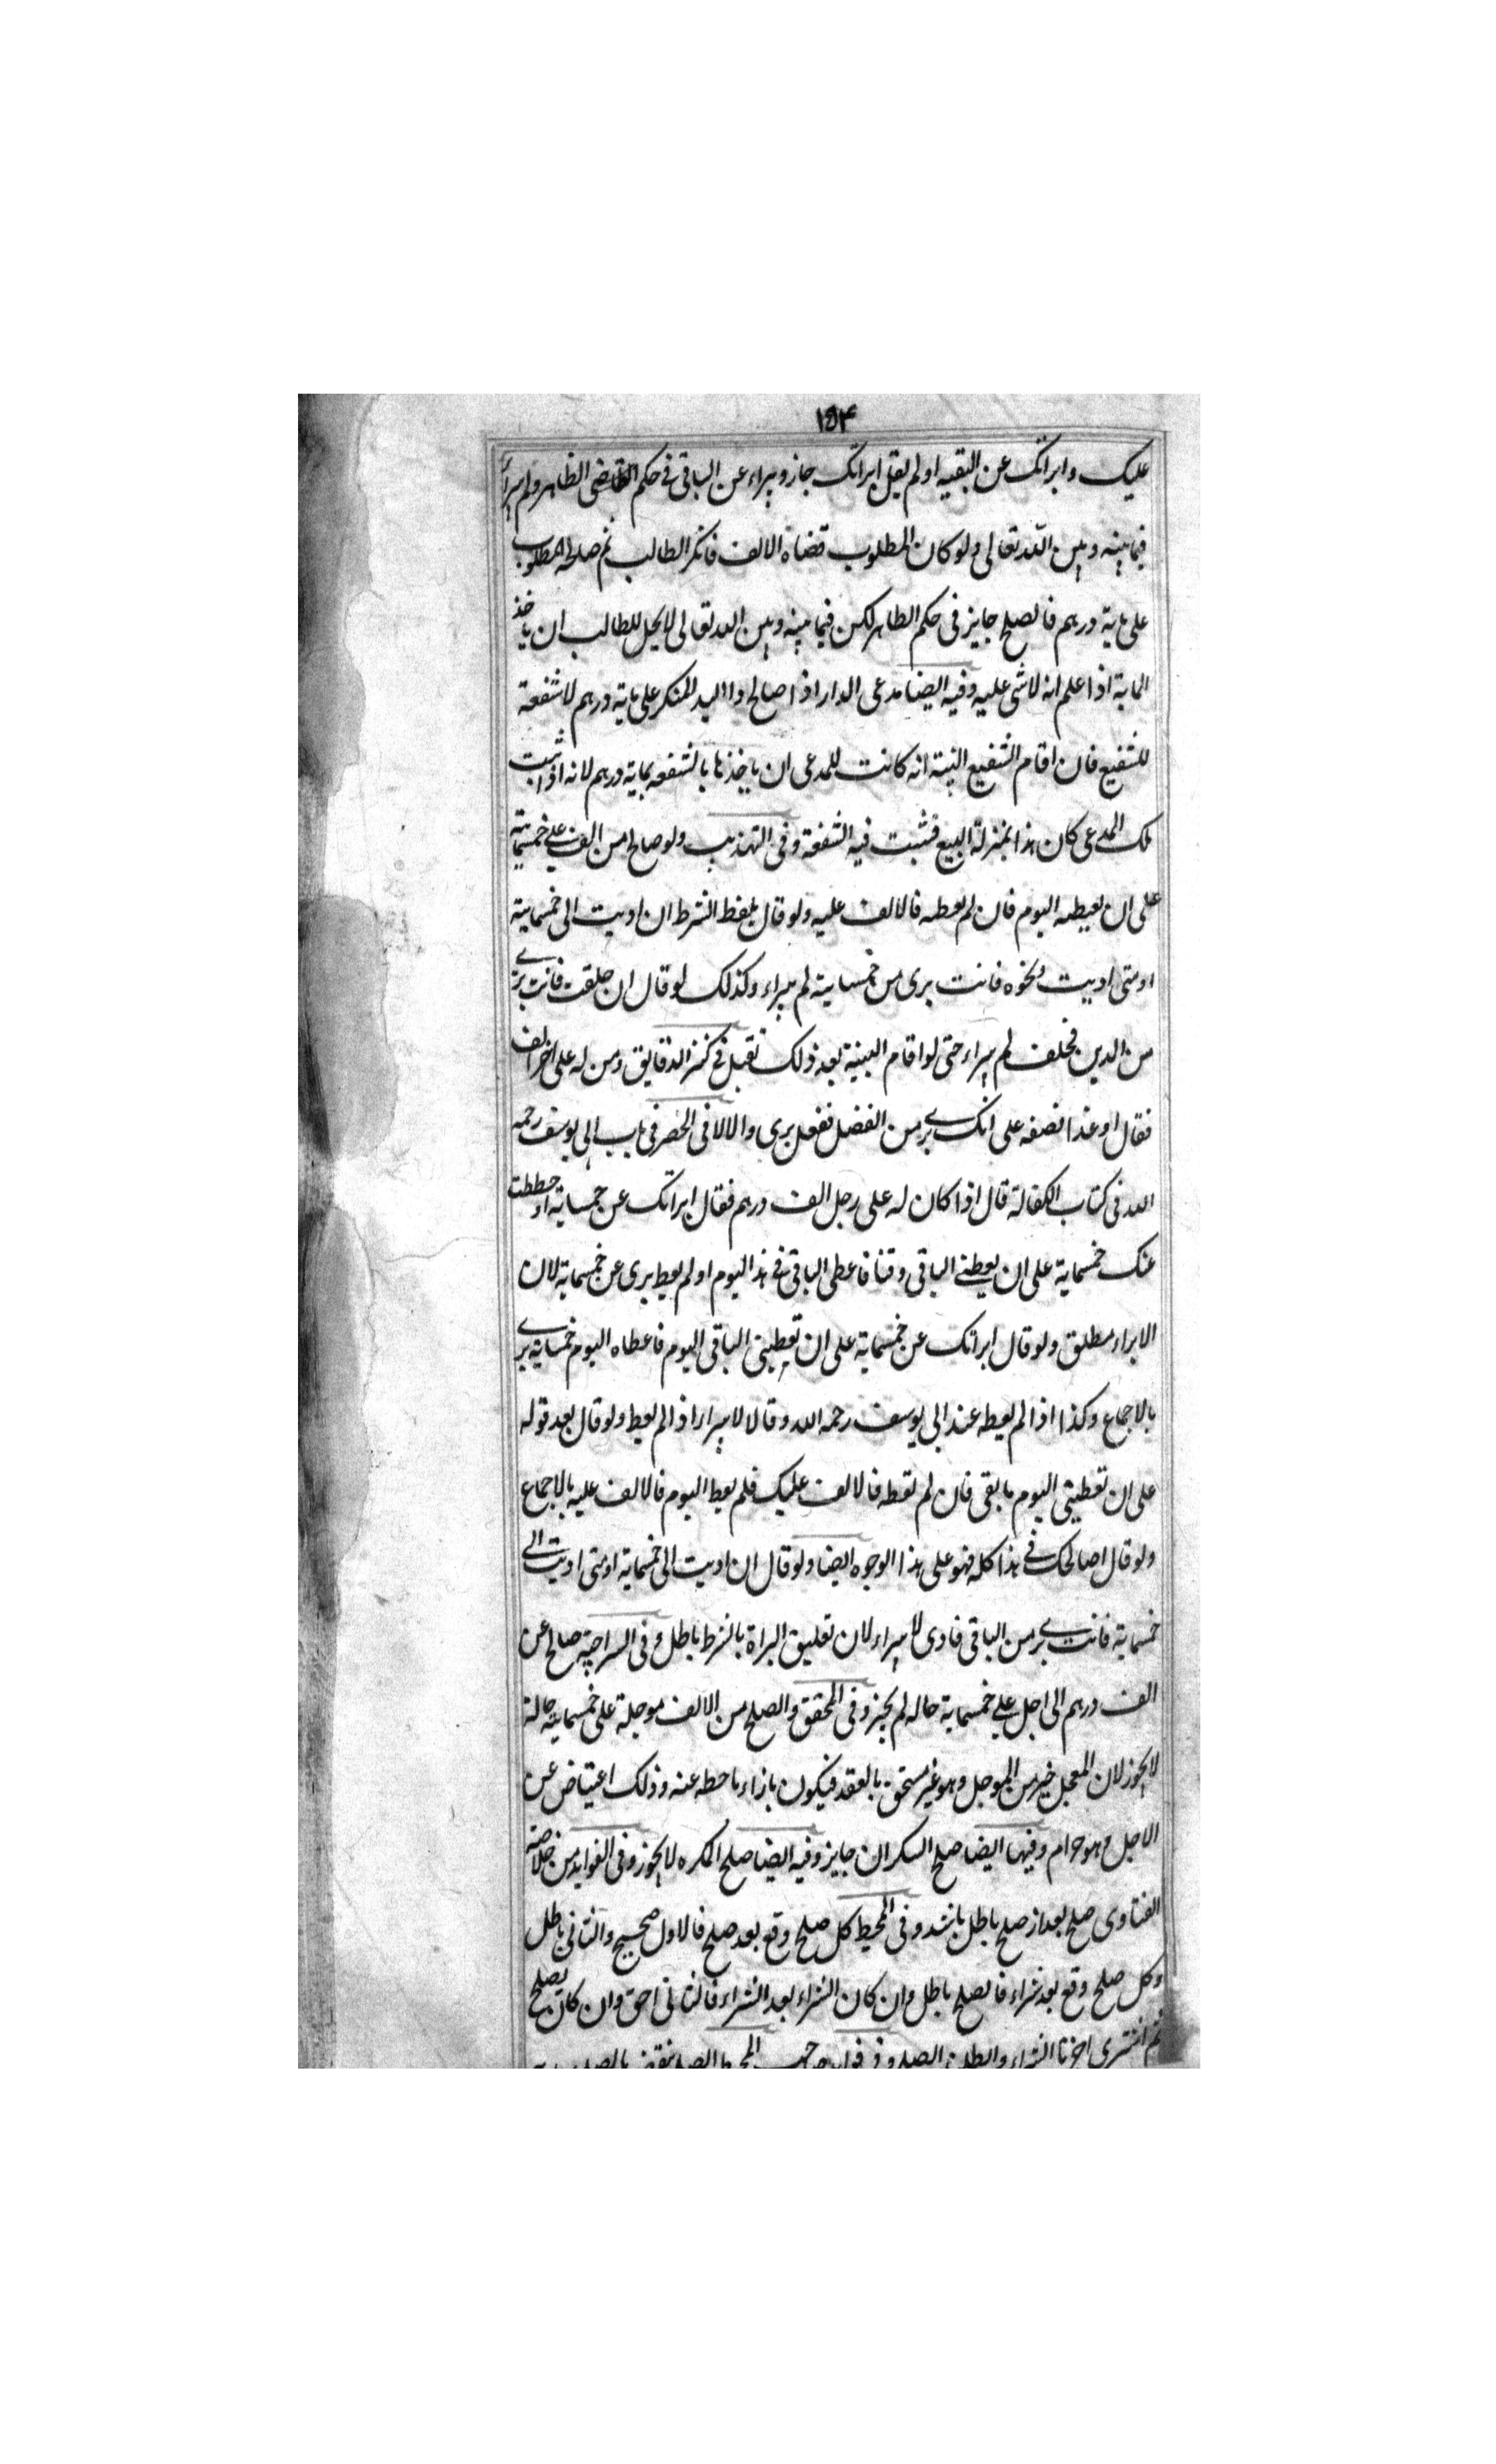 ١٥٤
عليك وابراتك عن البقيه او لم يقل ابراتك جاز و يبراء عن الباقى فى حكم القاضى الظاهر ولم يبرأ
فيما بينه و بين الله تعالى ولو كان المطلوب قضاه الالف فانكر الطالب ثم صالحه المطلوب
على ماية درهم فالصلح جايز فى حكم الظاهر لكن فيما بينه و بين الله تعالى لا يحل للطالب ان ياخذ
الماية اذا علم انه لا شى عليه وفيه ايضا مدعى الدار اذا صالح ذا اليد المنكر على ماية درهم لا شفعة
للشفيع فان اقام الشفيع البينة انه كانت للمدعى ان ياخذها بالشفعه بماية درهم لانه اذا ثبت
ملك المدعى كان هذا بمنزلة البيع فثبت فيه الشفعة وفى التهذيب ولو صالح من الف على خمسماية
على ان يعطيه اليوم فان لم يعطه فالالف عليه ولو قال بلفظ الشرط ان اديت الى خمسماية
او متى اديت ونحوه فانت برى من خمسماية لم يبراء وكذلك لو قال ان حلفت فانت برى
من الدين فحلف لم يبراء حتى لو اقام البينة بعد ذلك تقبل فى كنز الدقايق ومن له على اخر الف
فقال اد غدا نصفه على انك برى من الفضل ففعل برى والا لا فى الحصر فى باب ابى يوسف رحمه
الله فى كتاب الكفالة قال اذا كان له على رجل الف درهم فقال ابراتك عن خمسماية او حططت
عنك خمسماية على ان يعطينى الباقى وقتا فاعطى الباقى فى هذا اليوم او لم يعط برى عن خمسماية لان
الابراء مطلق ولو قال ابراتك عن خمسماية على ان تعطينى الباقى اليوم فاعطاه اليوم خمسماية برى
بالاجماع وكذا اذا لم يعطه عند ابى يوسف رحمه الله وقالا لا يبرا اذا لم يعط ولو قال بعد قوله
على ان تعطينى اليوم ما بقى فان لم تعطه فالالف عليك فلم يعط اليوم فالالف عليه بالاجماع
ولو قال اصالحك فى هذا كله فهو على هذا الوجوه ايضا ولو قال ان اديت الى خمسماية او متى اديت الى
خمسماية فانت برى من الباقى فادى لا يبراء لان تعليق البراة بالشرط باطل وفى السراجيه صالح عن
الف درهم الى اجل على خمسماية حاله لم يجز وفى المحقق والصلح من الالف موجلة على خمسماية حالة
لا يجوز لان المعجل خير من الموجل وهو غير مستحق بالعقد فيكون بازاء ما حطه عنه وذلك اعتياض عن
الاجل وهو حرام وفيها ايضا صلح السكران جايز وفيه ايضا صلح المكره لا يجوز وفى الفوايد من خلاصة
الفتاوى صلح بعد از صلح باطل باشد وفى المحيط كل صلح وقع بعد صلح فالاول صحيح والثانى باطل
وكل صلح وقع بعد شراء فالصلح باطل وان كان الشراء بعد الشراء فالثانى احق وان كان بصلح
ثم اشترى اجزنا الشراء وابطلنا الصلح وفى فوايد صاحب المحيط الصلح